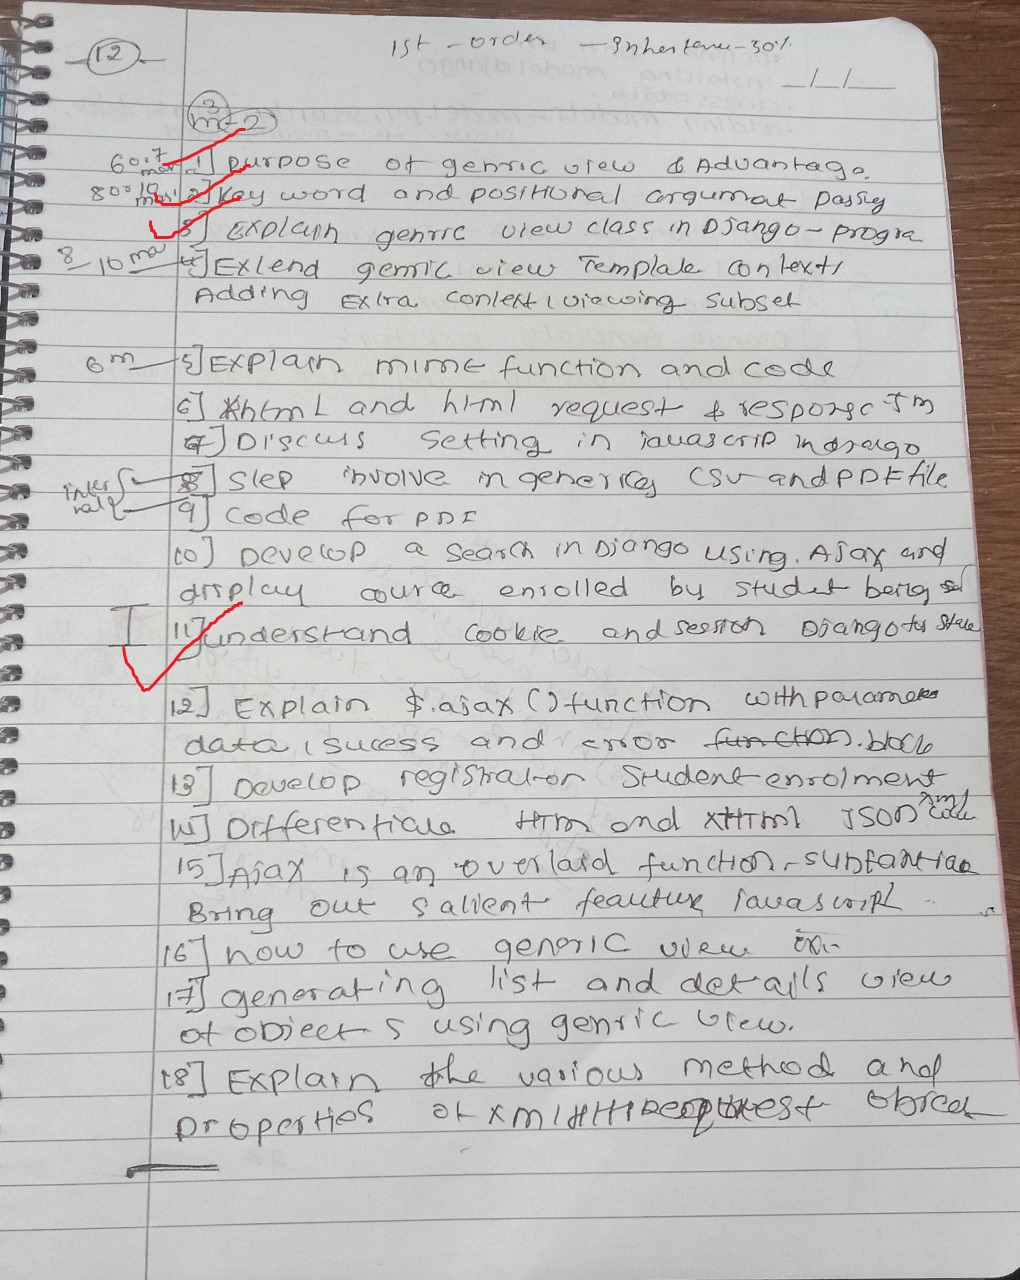 12
1st - order - Inheritence - 30%
3
m-2
1] purpose of genric view & Advantage.
2] Key word and positional argumat passig
3] Explain genric view class in Django - progra
8-10 ma 4] Extend genric view Template context,
Adding Extra context, viewing subset
6m 5] Explain mime function and code
6] xhtmL and html request & response
7] Discuss setting in javascrip in drago
8] step involve in genericg CSV and PDF file
9] code for PDF
10] Develop a search in Django using. Ajax and
display cource enrolled by studet being
I 11] understand cookie and session Django for state
12] Explain $.ajax () function with parameters
data, sucess and error function. block
13] Develop registration Student enrolment
14] Differentiate HTm and XHTml JSON xml
15] Ajax is an overlaid function - sunfantiae
Bring out salient feauture javascript
16] how to use generic view
17] generating list and details view
of objects using genric view.
18] Explain the various method and
properties of xmlHttpRequest object